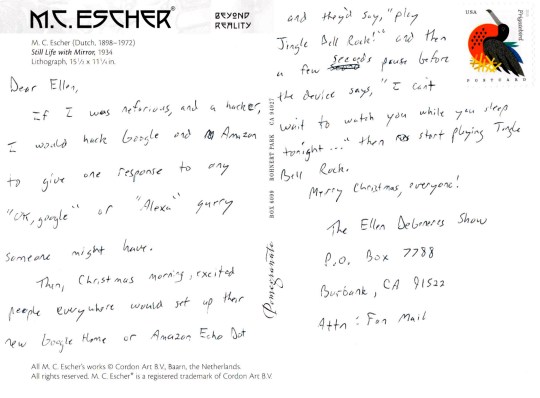 M.C. ESCHER®
BEYOND
REALITY
M. C. Escher (Dutch, 1898–1972)
Still Life with Mirror, 1934
Lithograph, 15½ x 11¼ in.
Dear Ellen,
If I was nefarious, and a hacker,
I would hack Google and Amazon
to give one response to any
"OK, google" or "Alexa" qurry
someone might have.
Then, Christmas morning, excited
people everywhere would set up their
new Google Home or Amazon Echo Dot
All M. C. Escher's works © Cordon Art B.V., Baarn, the Netherlands.
All rights reserved. M. C. Escher® is a registered trademark of Cordon Art B.V.
Pomegranate
BOX 6099 ROHNERT PARK CA 94927
and they'd say, "play
Jingle Bell Rock!" and then
a few seconds pause before
the device says, "I can't
wait to watch you while you sleep
tonight..." then start playing Jingle
Bell Rock.
Merry Christmas, everyone!
The Ellen DeGeneres Show
P.O. Box 7788
Burbank, CA 91522
Attn: Fan Mail
USA
POSTCARD